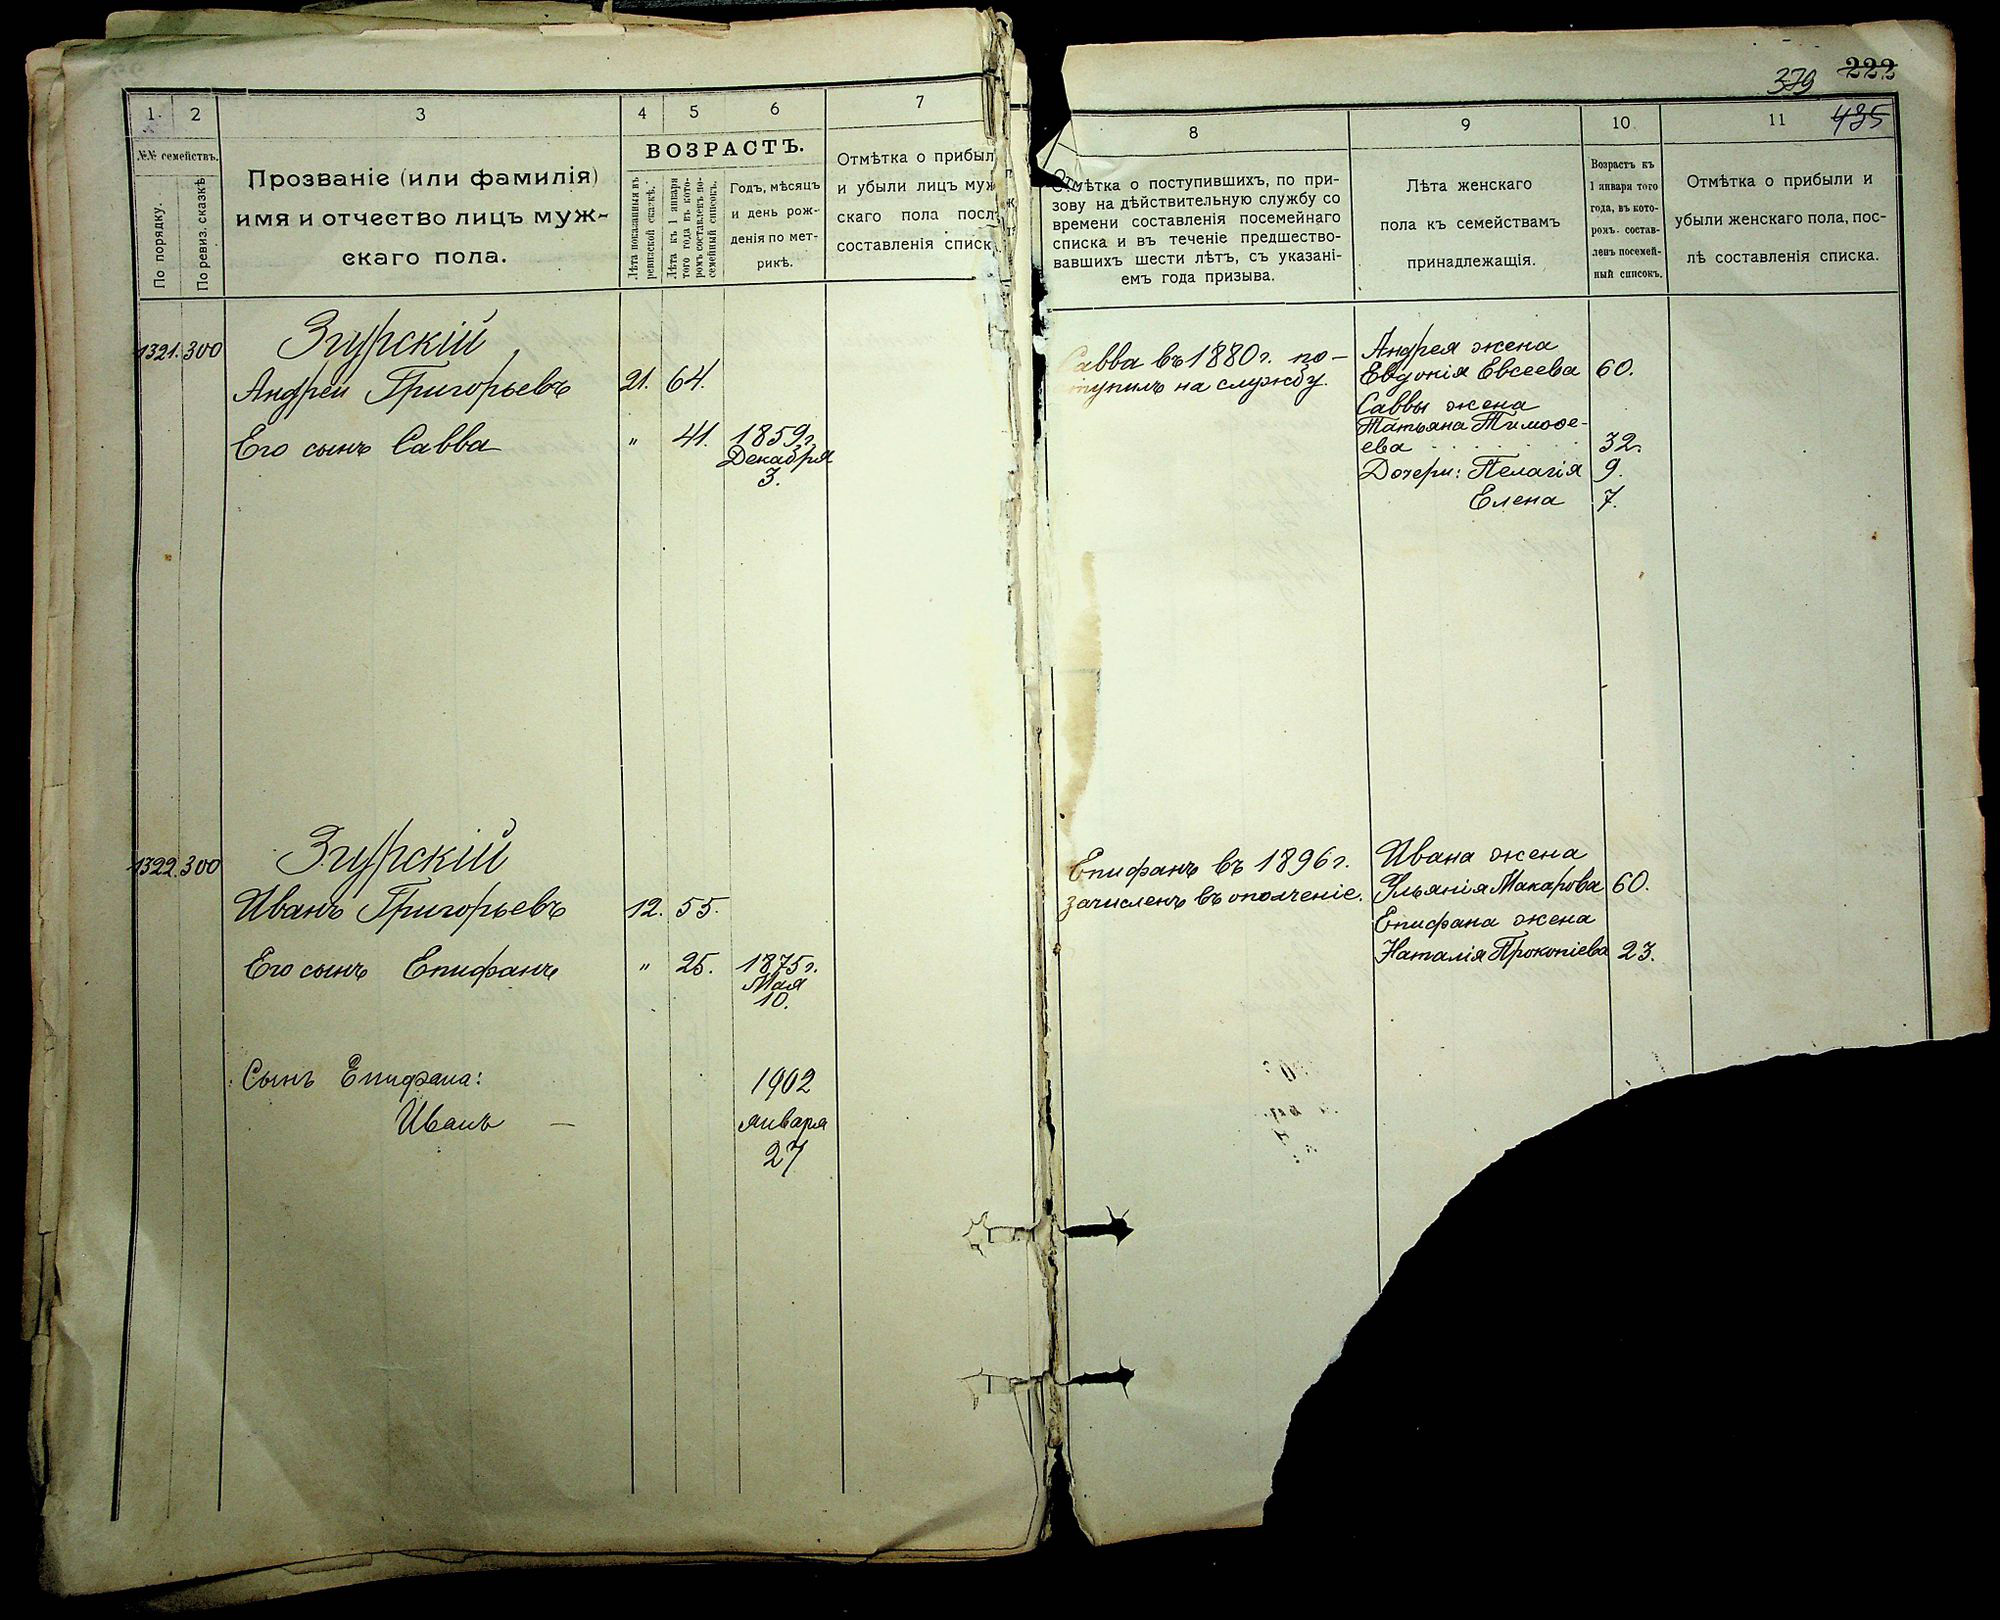 379 222
435
1. 2 3 4 5 6 7
8 9 10 11
№№ семействъ.
По порядку.
По ревиз. сказкѣ
Прозваніе (или фамилія)
имя и отчество лицъ муж-
скаго пола.
ВОЗРАСТЪ.
Лѣта показанныя въ
ревизской сказкѣ.
Лѣта къ 1 января
того года въ кото-
ромъ составленъ по-
семейный списокъ.
Годъ, мѣсяцъ
и день рож-
денія по мет-
рикѣ.
Отмѣтка о прибыл
и убыли лицъ муж
скаго пола посл
составленія списк
Отмѣтка о поступившихъ, по при-
зову на дѣйствительную службу со
времени составленія посемейнаго
списка и въ теченіе предшество-
вавшихъ шести лѣтъ, съ указані-
емъ года призыва.
Лѣта женскаго
пола къ семействамъ
принадлежащія.
Возрастъ къ
1 января того
года, въ кото-
ромъ. состав-
ленъ посемей-
ный списокъ.
Отмѣтка о прибыли и
убыли женскаго пола, пос-
лѣ составленія списка.
1321. 300 Згурскій
Андрей Григорьевъ 21. 64.
Его сынъ Савва " 41. 1859г.
Декабря
3.
Савва въ 1880г. по-
тупилъ на службу.
Андрея жена
Евдокія Евсеева 60.
Саввы жена
Татьяна Тимоѳе-
ева 32.
Дочери: Пелагія 9.
Елена 7.
1322. 300 Згурскій
Иванъ Григорьевъ 12. 55.
Его сынъ Епифанъ " 25. 1875г.
Мая
10.
Сынъ Епифана: 1902
Иванъ — января
27
Епифанъ въ 1896г.
зачисленъ въ ополченіе.
Ивана жена
Ульянія Макарова 60.
Епифана жена
Наталія Прокопіева 23.